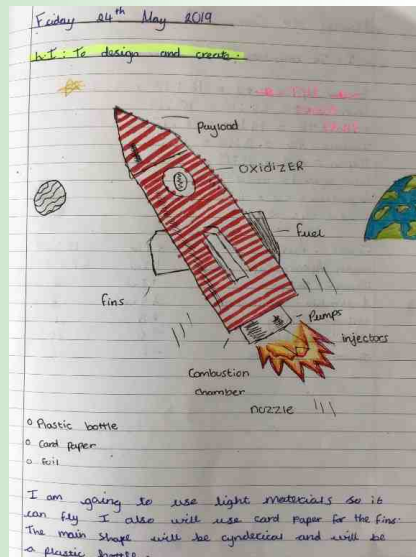 Friday 24th May 2019
L.I: To design and create.
Payload
OXIDIZER
Fuel
fins
Pumps
injectors
Combustion
chamber
nozzle
o Plastic bottle
o Card Paper
o Foil
I am going to use light materials so it
can fly I also will use card paper for the fins.
The main shape will be cyndecical and will be
a plastic bottle.